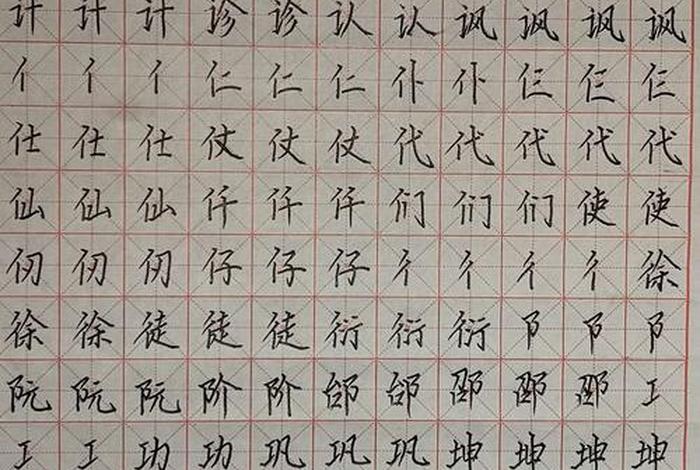 计计计诊诊认认讽讽讽讽
亻亻亻仁仁仁仆仆仨仨仨
仕仕仕仗仗仗代代代代代
仙仙仙仟仟仟们们们使使
仞仞仞仔仔仔彳彳彳彳徐
徐徐徒徒徒衍衍衍阝阝阝
阮阮阮阶阶邰邰工
工工功功巩巩巩坤坤坤坤